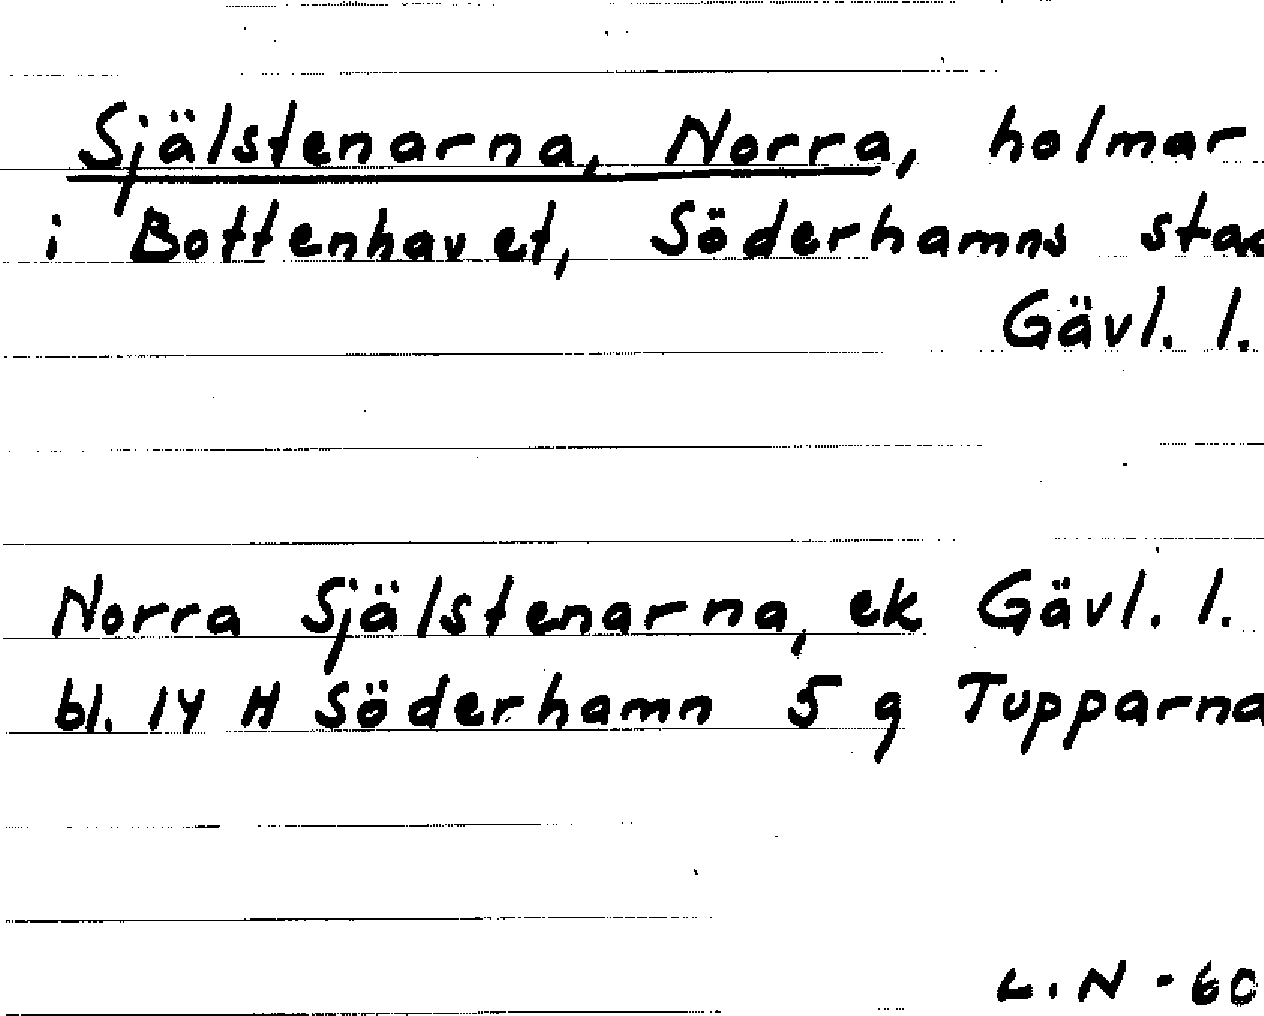 Själstenarna, Norra, holmar
i Bottenhavet, Söderhamns stad
Gävl. l.
Norra Själstenarna, ek Gävl. l.
bl. 14 H Söderhamn 5 g Tupparna
L.N -60